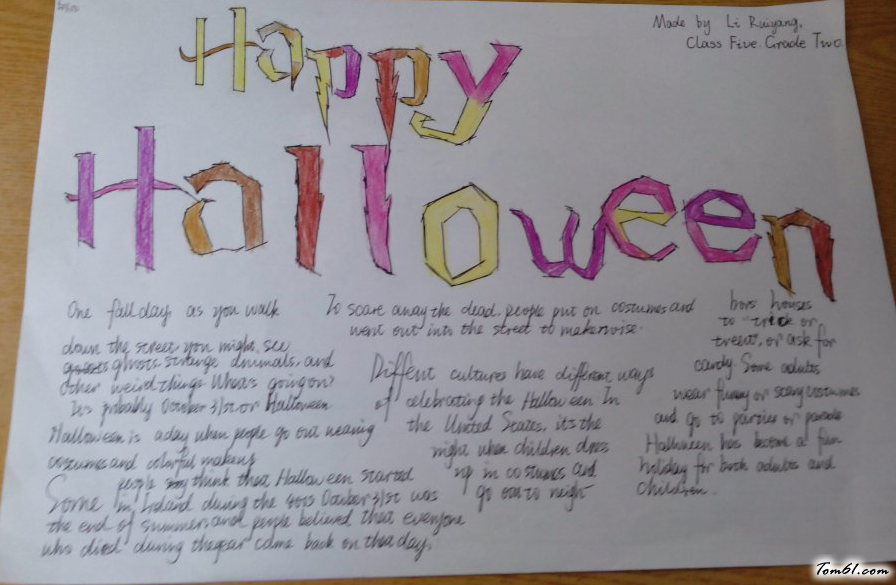 Made by Li Ruiyang,
Class Five. Grade Two.
Happy
Halloween
One fall day, as you walk
down the street, you might see
ghosts, strange animals, and
other weird things. What's going on?
It's probably October 31st or Halloween
Halloween is a day when people go out wearing
costumes and colorful makeup
Some people think that Halloween started
in Ireland during the 400s October 31st was
the end of summer, and people believed that everyone
who died during the year came back on that day.
To scare away the dead, people put on costumes and
went out into the street to make noise.
Diffent cultures have different ways
of celebrating the Halloween In
the United States, it's the
night when children dress
up in costumes and
go out to neigh
bors houses
to "trick or
treat", or ask for
candy. Some adults
wear funny or scary costumes
and go to parties or parade
Halloween has become a fun
holiday for both adults and
children.
Tom61.com